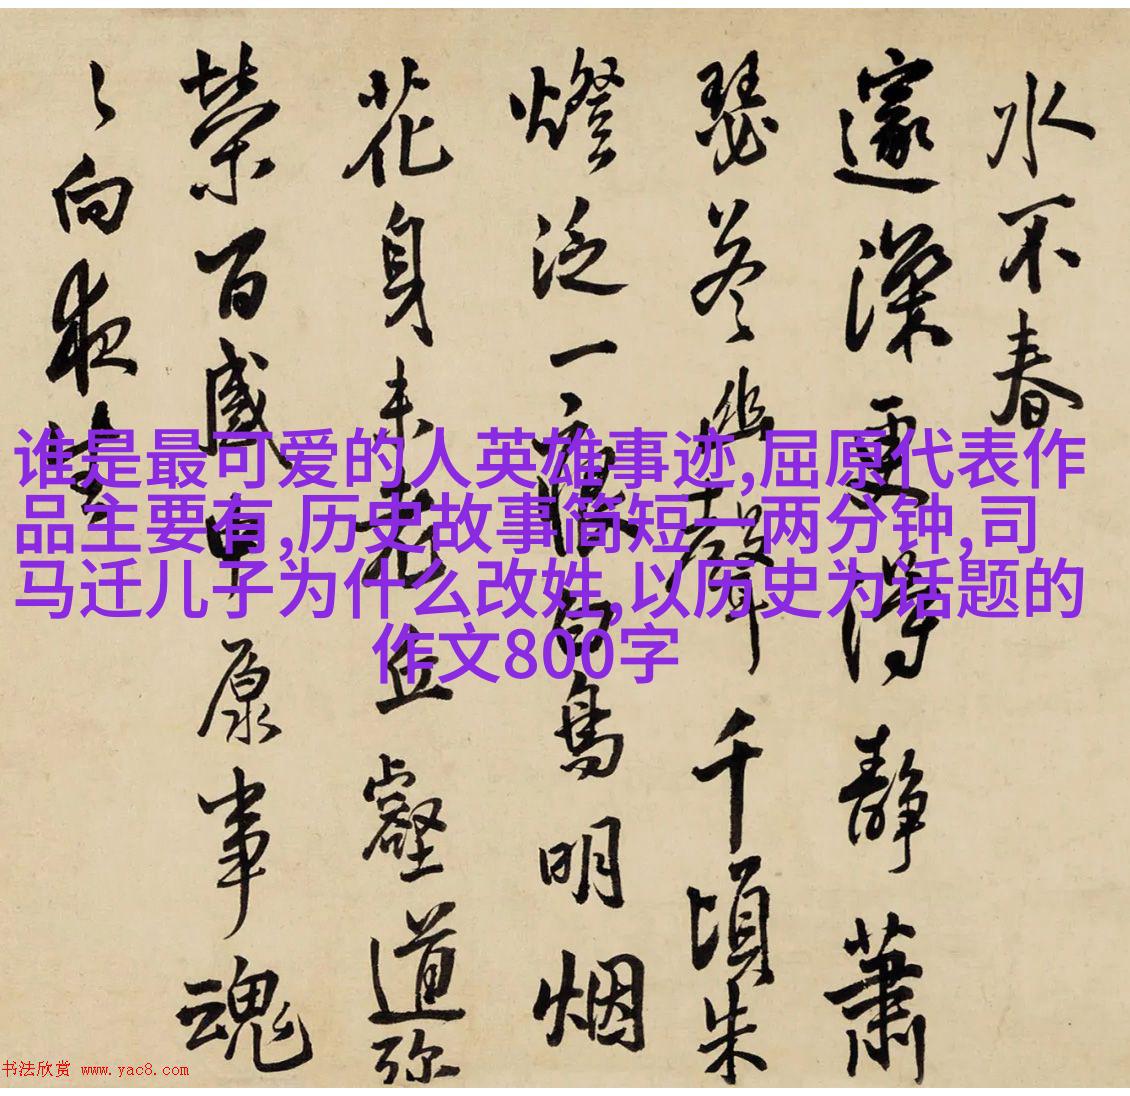 谁是最可爱的人英雄事迹,屈原代表作
品主要有,历史故事简短一两分钟,司
马迁儿子为什么改姓,以历史为话题的
作文800字
水不春
邃深更得静蕭
瑟 幽 聲千頃朱
燈泛一痕白鳥明烟
花身未老丘壑道弥
榮百感中原事魂
々向夜
书法欣赏 www.yac8.com